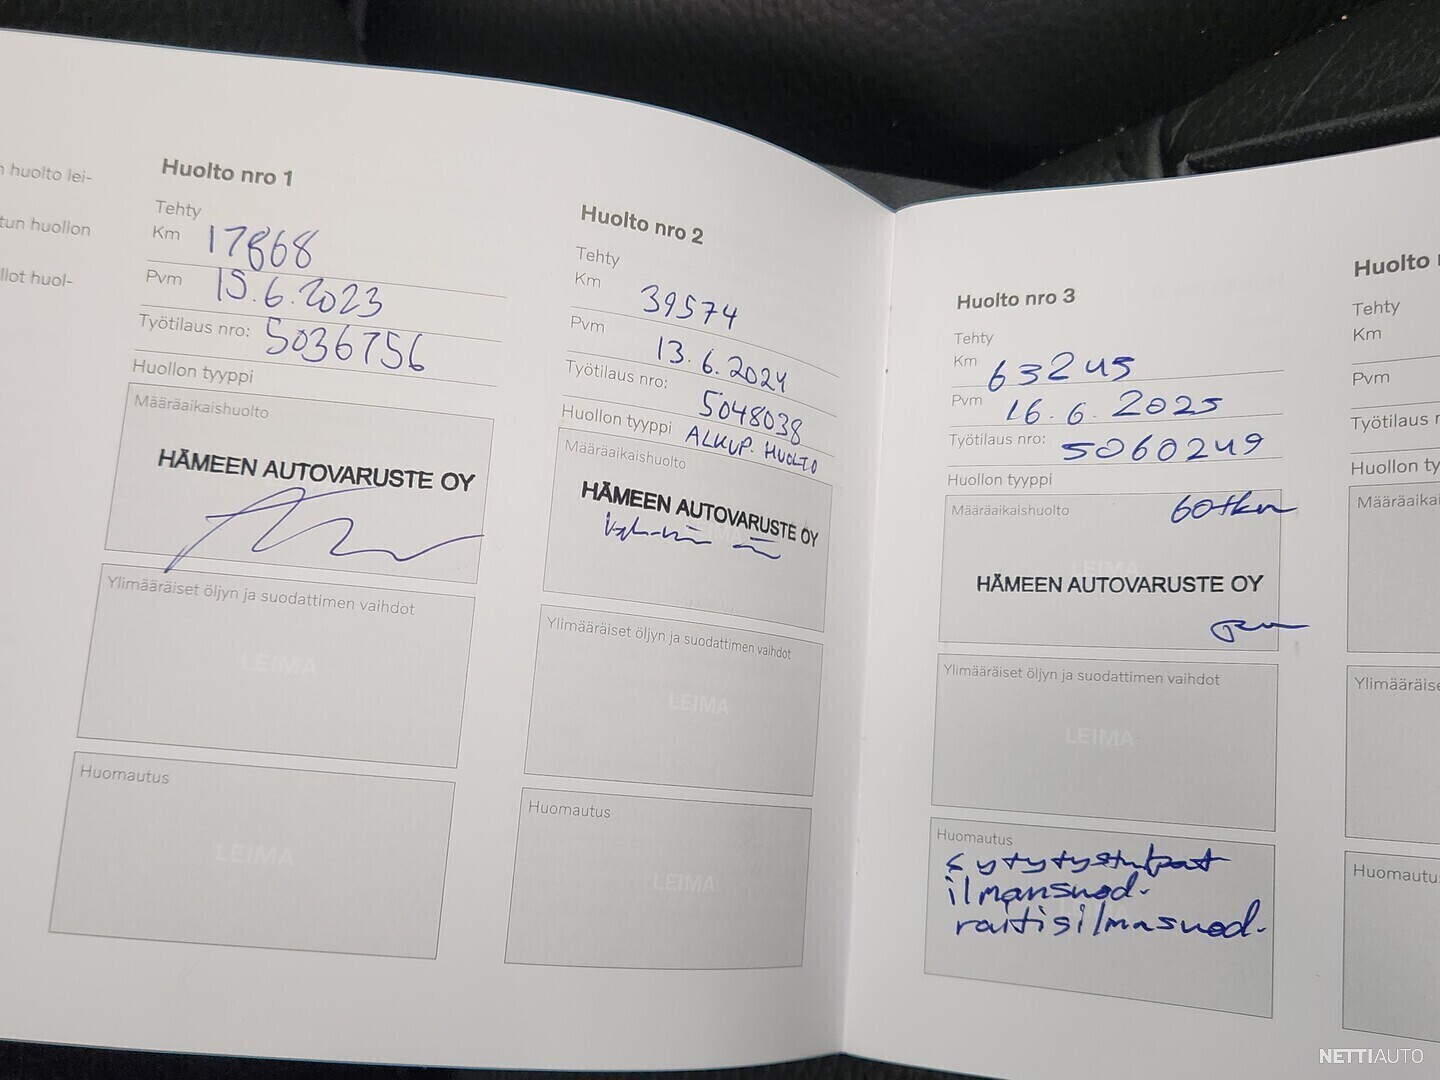 n huolto lei-
tun huollon
llot huol-
Huolto nro 1
Tehty
Km 17868
Pvm 15.6.2023
Työtilaus nro: 5036756
Huollon tyyppi
Määräaikaishuolto
HÄMEEN AUTOVARUSTE OY
Ylimääräiset öljyn ja suodattimen vaihdot
LEIMA
Huomautus
LEIMA
Huolto nro 2
Tehty
Km 39574
Pvm 13.6.2024
Työtilaus nro: 5048038
Huollon tyyppi ALKUP. HUOLTO
Määräaikaishuolto
HÄMEEN AUTOVARUSTE OY
Ylimääräiset öljyn ja suodattimen vaihdot
LEIMA
Huomautus
LEIMA
Huolto nro 3
Tehty
Km 63245
Pvm 16.6.2025
Työtilaus nro: 5060249
Huollon tyyppi
Määräaikaishuolto 60tkm
LEIMA
HÄMEEN AUTOVARUSTE OY
Ylimääräiset öljyn ja suodattimen vaihdot
LEIMA
Huomautus
sytytystulpat
ilmansuod.
raitisilmasuod.
Huolto
Tehty
Km
Pvm
Työtilaus n
Huollon ty
Määräaikai
Ylimääräise
Huomautu
NETTIAUTO